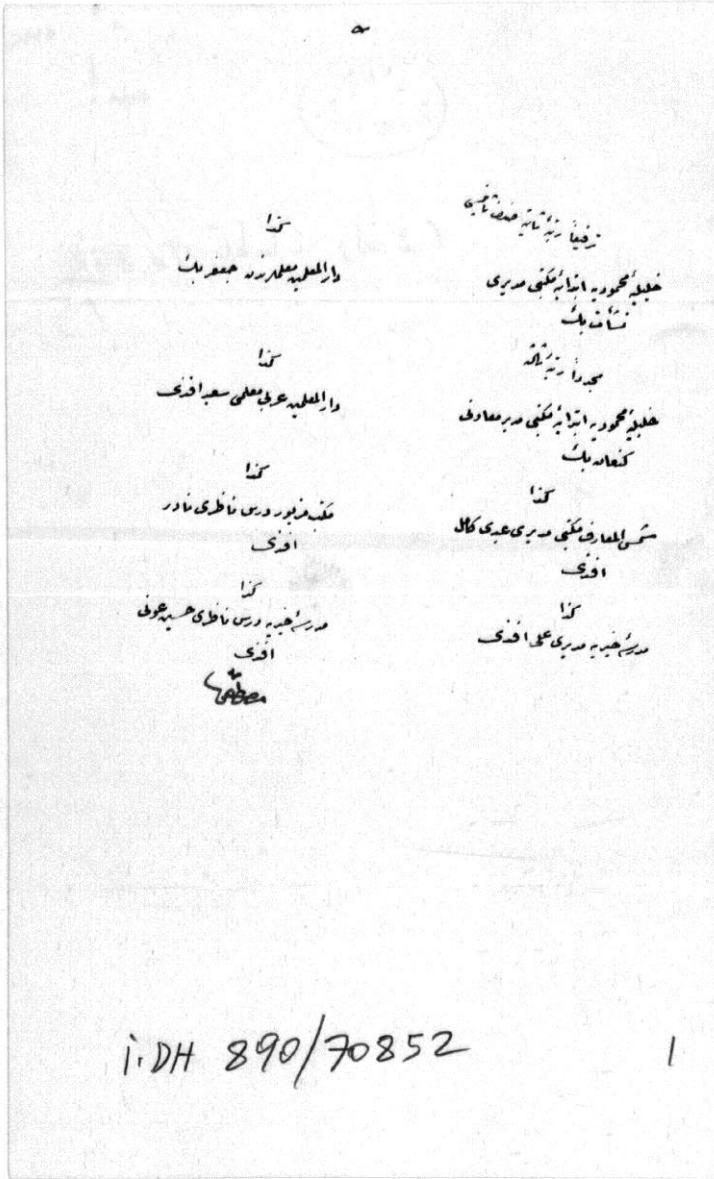 ترفيعاً رتبۀ ثانيه صنف ثانيسى
خليلۀ محموديه ابتدائيۀ مكتبى مديرى
نشأت بك
مجدداً رتبۀ ثالثه
خليلۀ محموديه ابتدائيۀ مكتبى مدير معاونى
كنعان بك
كذا
شمس المعارف مكتبى مديرى عبدى كامل
افندى
كذا
مدرسۀ خيريه مديرى على افندى
كذا
دار المعلمين معلملرندن جعفر بك
كذا
دار المعلمين عربى معلمى سعيد افندى
كذا
مكتب مزبور درس ناظرى نادر
افندى
كذا
مدرسۀ خيريه درس ناظرى حسين عونى
افندى
مصطفى
İ.DH 890/70852
1